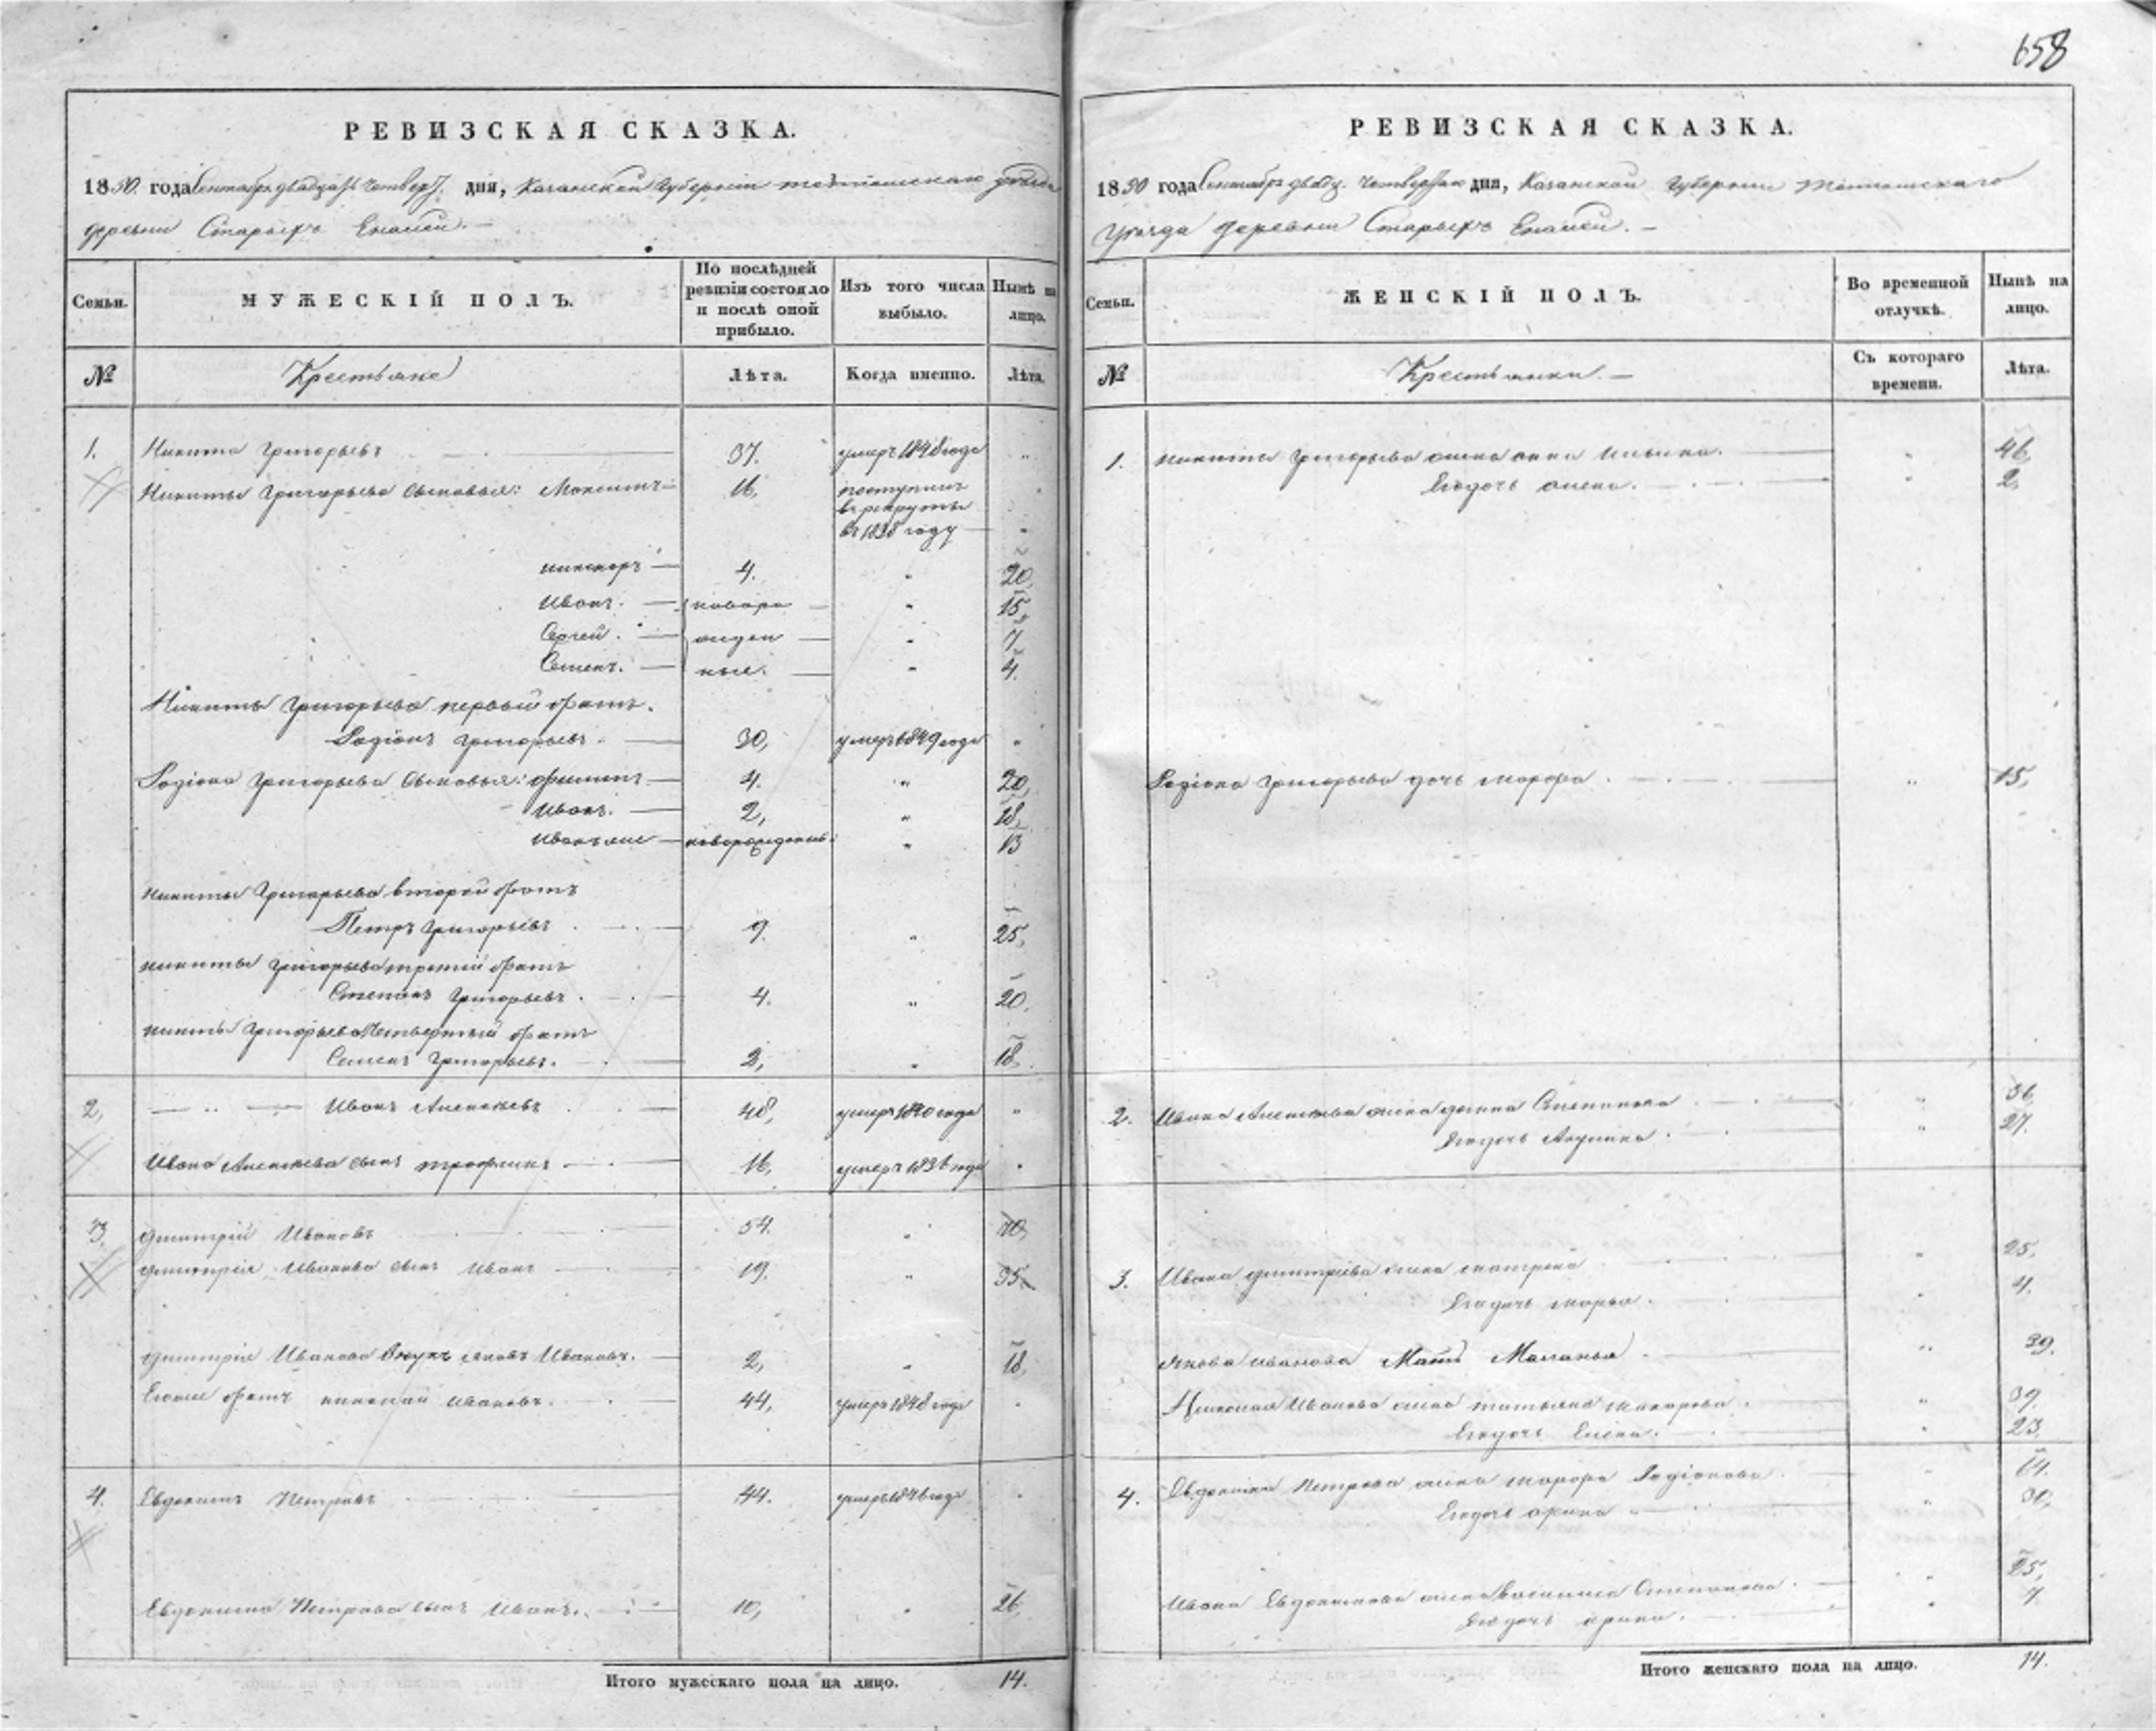 658
РЕВИЗСКАЯ СКАЗКА.
1850 года Сентября двадцать четверт. дня, Казанской Губернии Тетюшскаго уезда
деревни Старыхъ Еналей. —
Семьи.
МУЖЕСКІЙ ПОЛЪ.
По послѣдней ревизіи состояло и послѣ оной прибыло.
Изъ того числа выбыло.
Нынѣ на лицо.
№
Крестьяне
Лѣта.
Когда именно.
Лѣта.
1. Никита Григорьевъ 37. умеръ 1848 года "
Никиты Григорьева сыновья: Максимъ 16, поступилъ
въ рекруты
въ 1838 году "
никифоръ 4. " 20,
Иванъ. новоро " 15,
Сергей. жден " 7,
Семенъ. ные. " 4.
Никиты Григорьева первый братъ.
Родіонъ Григорьевъ. 30, умеръ 1849 года "
Родіона Григорьева сыновья: филипъ 4. " 20,
Иванъ. 2, " 18,
Иванъ же новорожденный " 13
никиты Григорьева второй братъ
Петръ Григорьевъ 9. " 25,
никиты Григорьева третій братъ
Степанъ Григорьевъ. 4. " 20.
никиты Григорьева Четвертый братъ
Семенъ Григорьевъ. 2, " 18.
2, Иванъ Алексѣевъ 48, умеръ 1840 года "
Ивана Алексѣева сынъ трофимъ 16, умеръ 1836 года "
3. Дмитрій Ивановъ 54. " 70,
Дмитрія Иванова сынъ Иванъ 19. " 35.
Дмитрія Иванова Внукъ яковъ Ивановъ. 2, " 18.
Егоже братъ николай ивановъ. 44, умеръ 1848 года "
4. Евдокимъ Петровъ 44. умеръ 1846 года "
Евдокима Петрова сынъ Иванъ. 10, " 26,
Итого мужескаго пола на лицо. 14.
РЕВИЗСКАЯ СКАЗКА.
1850 года Сентября двадц. четвертаго дня, Казанской Губернии Тетюшскаго
Уезда деревни Старыхъ Еналей. —
Семьи.
ЖЕНСКІЙ ПОЛЪ.
Во временной отлучкѣ.
Нынѣ на лицо.
№
Крестьянки. —
Съ котораго времени.
Лѣта.
1. никиты Григорьева жена анна ильина. " 46,
Егодочь " 2,
Родіона Григорьева дочь марфра. " 15,
2. Ивана Алексѣева жена Степанова " 56,
Егодочь Акулина. " 27.
3. Ивана дмитріева жена матрена " 25,
Егодочь марья. " 4.
якова иванова Мать Маланья " 39.
Николая Иванова жена татьяна макарова. " 39.
Егодочь Елена. " 23,
4. Евдокима Петрова жена марфра Родіонова. " 64.
Егодочь арина " 30,
Ивана Евдокимова жена Василиса Степанова. " 25,
Егодочь арина. " 7.
Итого женскаго пола на лицо. 14.